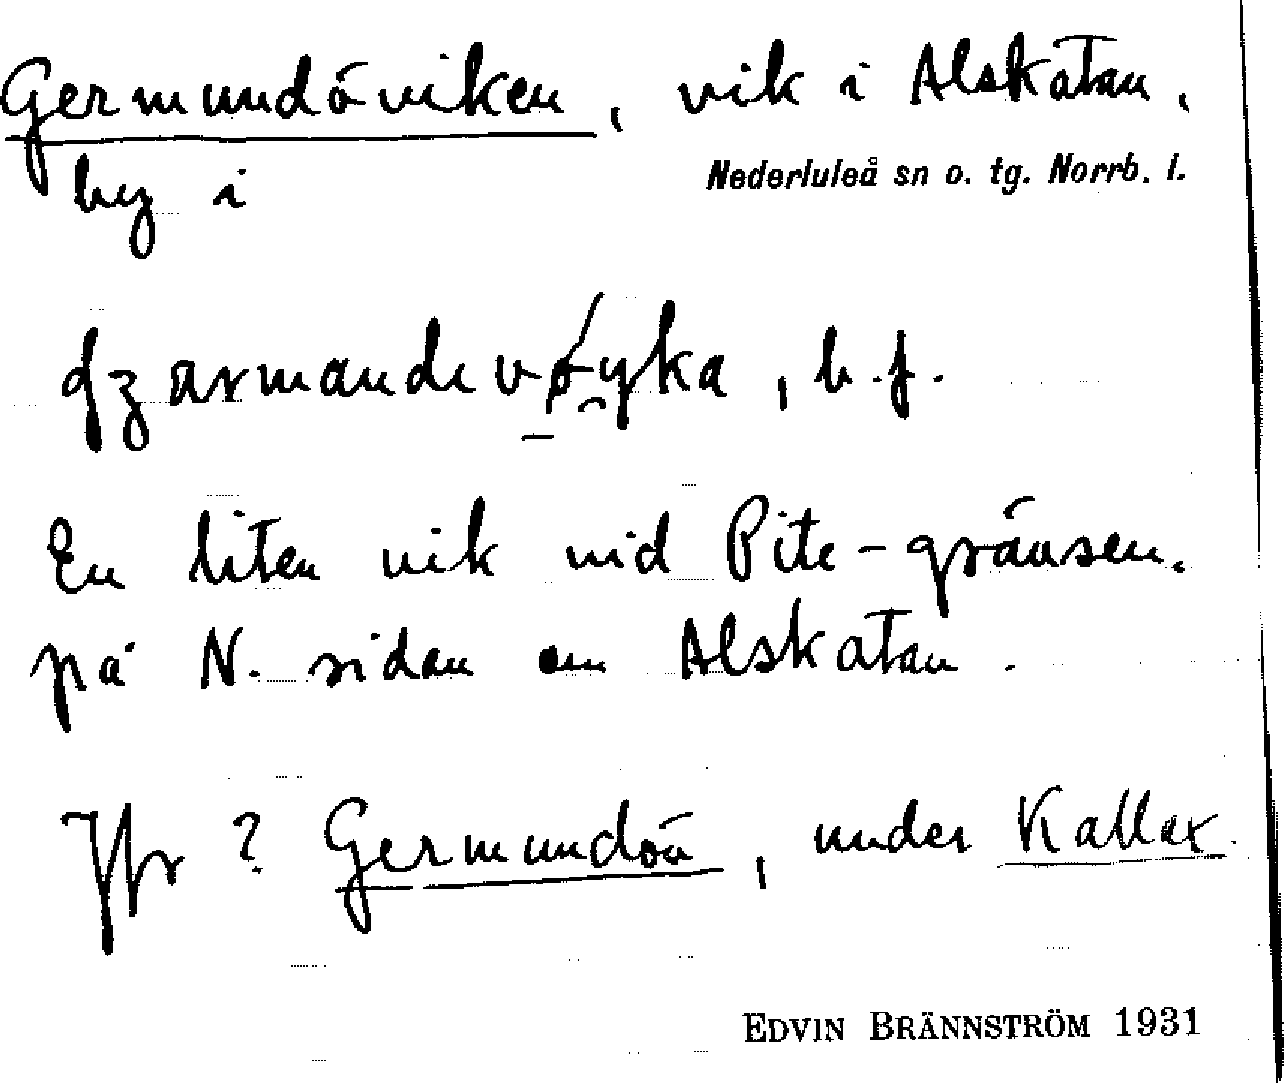 Germundöviken, vik i Alskatan,
by i Nederluleå sn o. tg. Norrb. l.
b.f.
En liten vik vid Pite-gränsen.
på N. sidan om Alskatan.
Jfr ? Germundön, under Kallax.
EDVIN BRÄNNSTRÖM 1931